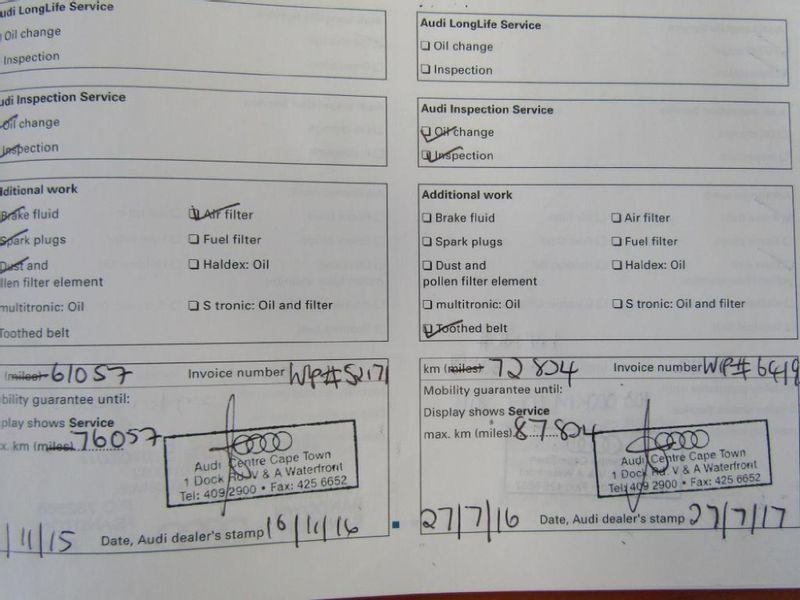 udi LongLife Service
Oil change
Inspection
udi Inspection Service
Oil change
Inspection
dditional work
Brake fluid
Air filter
Spark plugs
Fuel filter
Dust and
llen filter element
Haldex: Oil
multitronic: Oil
S tronic: Oil and filter
Toothed belt
(miles) 61057
Invoice number WP#52171
bility guarantee until:
play shows Service
x. km (miles) 76057
Audi Centre Cape Town
1 Dock Rd. V & A Waterfront
Tel: 409 2900 • Fax: 425 6652
/11/15
Date, Audi dealer's stamp 16/11/16
Audi LongLife Service
Oil change
Inspection
Audi Inspection Service
Oil change
Inspection
Additional work
Brake fluid
Air filter
Spark plugs
Fuel filter
Dust and
pollen filter element
Haldex: Oil
multitronic: Oil
S tronic: Oil and filter
Toothed belt
km (miles) 72804
Invoice number WP#
Mobility guarantee until:
Display shows Service
max. km (miles) 87804
Audi Centre Cape Town
1 Dock Rd. V & A Waterfront
Tel: 409 2900 • Fax: 425 6652
27/7/16
Date, Audi dealer's stamp 27/7/17